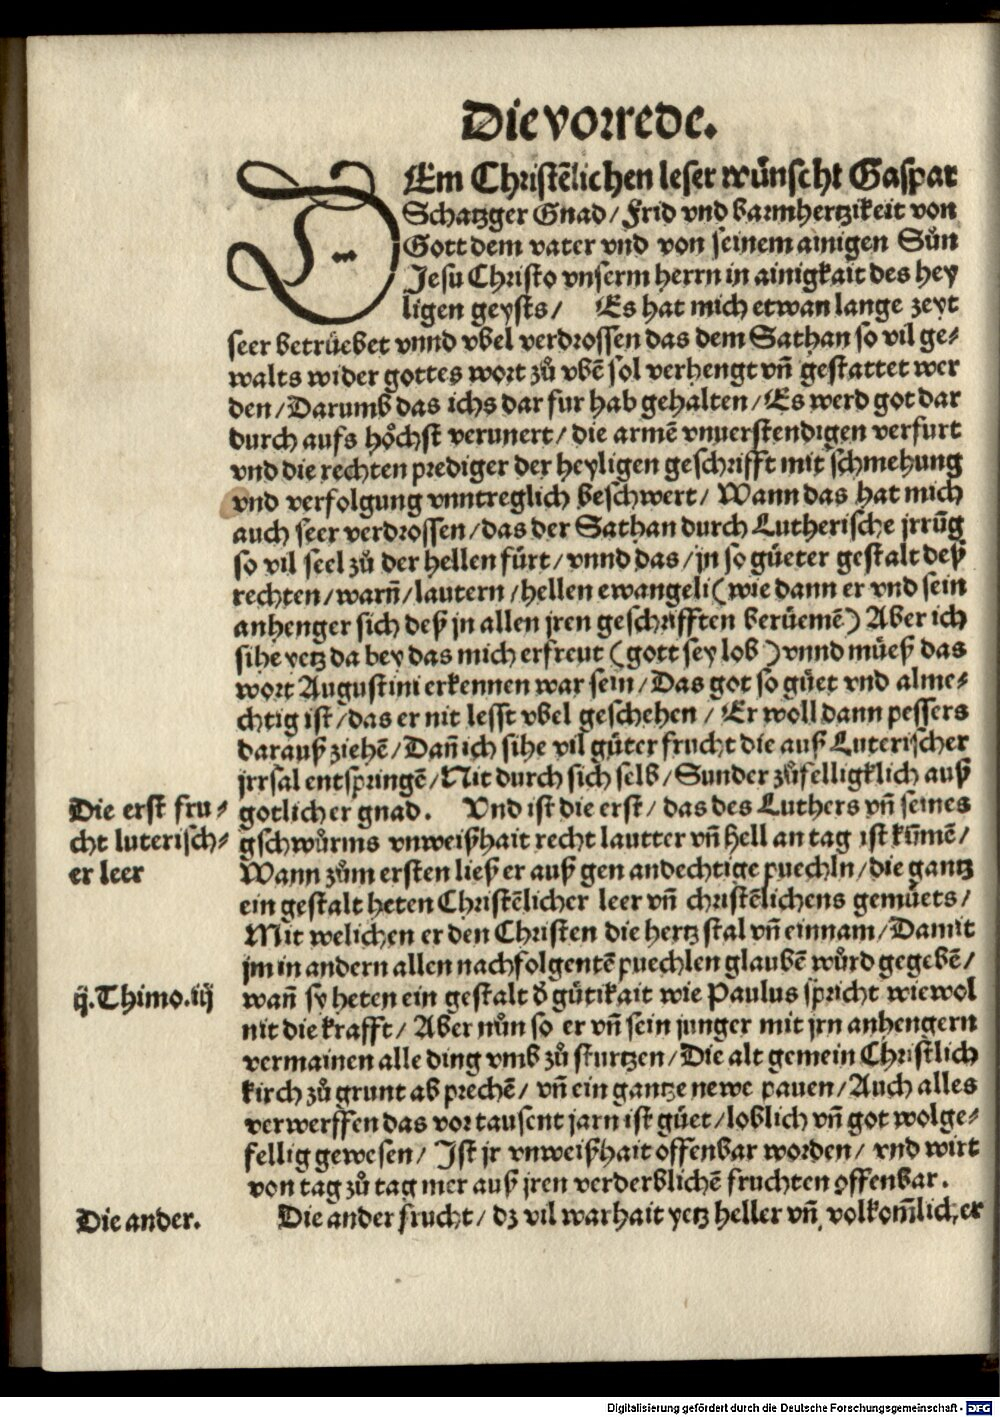 Die vorrede.
DEm Christēlichen leser wünscht Gaspar
Schatzger Gnad/ Frid vnd barmhertzikeit von
Gott dem vater vnd von seinem ainigen Sůn
Jesu Christo vnserm herrn in ainigkait des hey
ligen geysts/ Es hat mich etwan lange zeyt
seer betrüebet vnnd vbel verdrossen das dem Sathan so vil ge-
walts wider gottes wort zů vbē sol verhengt vñ gestattet wer
den/ Darumb das ichs dar fur hab gehalten/ Es werd got dar
durch aufs höchst verunert/ die armē vnuerstendigen verfurt
vnd die rechten prediger der heyligen geschrifft mit schmehung
vnd verfolgung vnntreglich beschwert/ Wann das hat mich
auch seer verdrossen/ das der Sathan durch Lutherische jrrūg
so vil seel zů der hellen fürt/ vnnd das/ jn so güeter gestalt deß
rechten/ warñ/ lautern/ hellen ewangeli (wie dann er vnd sein
anhenger sich deß jn allen jren geschrifften berüemē) Aber ich
sihe yetz da bey das mich erfreut (gott sey lob) vnnd müeß das
wort Augustini erkennen war sein/ Das got so güet vnd alme-
chtig ist/ das er nit lesst vbel geschehen/ Er woll dann pessers
darauß ziehē/ Dañ ich sihe vil güter frucht die auß Luterischer
jrrsal entspringē/ Nit durch sich selb/ Sunder zůfelligklich auß
Die erst fru-
cht luterisch-
er leer
gotlicher gnad. Vnd ist die erst/ das des Luthers vñ seines
gschwürms vnweißhait recht lautter vñ hell an tag ist kūmē/
Wann zům ersten ließ er auß gen andechtige puechln/ die gantz
ein gestalt heten Christēlicher leer vñ christēlichens gemüets/
Mit welichen er den Christen die hertz stal vñ einnam/ Damit
jm in andern allen nachfolgentē puechlen glaubē würd gegebē/
ij.Thimo.iij
wañ sy heten ein gestalt đ gütikait wie Paulus spricht wiewol
nit die krafft/ Aber nůn so er vñ sein junger mit jrn anhengern
vermainen alle ding vmb zů sturtzen/ Die alt gemein Christlich
kirch zů grunt ab prechē/ vñ ein gantze newe pauen/ Auch alles
verwerffen das vor tausent jarn ist güet/ loblich vñ got wolge-
fellig gewesen/ Jst jr vnweißhait offenbar worden/ vnd wirt
von tag zů tag mer auß jren verderblichē fruchten offenbar.
Die ander.
Die ander frucht/ dz vil warhait yetz heller vñ volkom̃licher
Digitalisierung gefördert durch die Deutsche Forschungsgemeinschaft - DFG